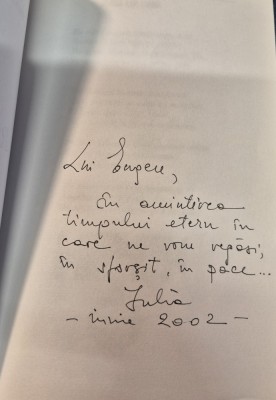 Lui Eugen,
În amintirea
timpului etern în
care ne vom regăsi,
în sfârșit, în pace...
Julia
- iunie 2002 -